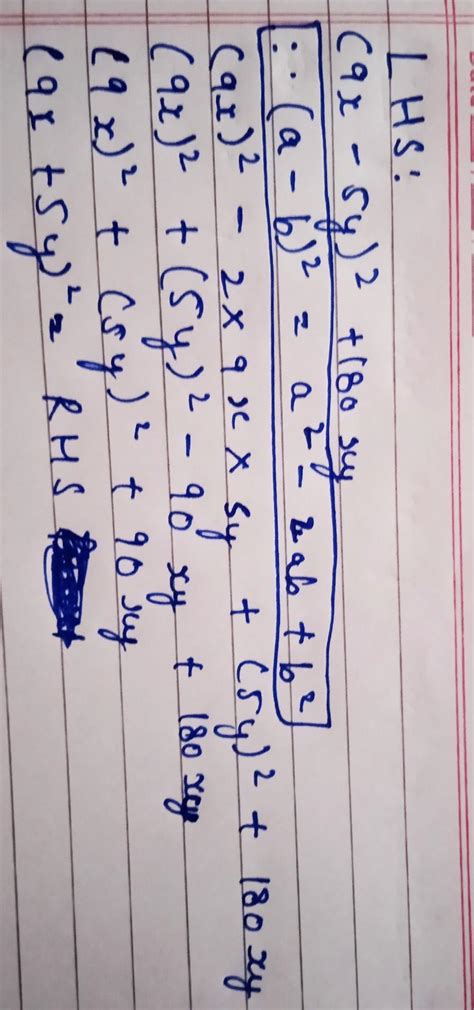 LHS:
(9x - 5y)² + 180 xy
∵ (a - b)² = a² - 2ab + b²
(9x)² - 2 × 9x × 5y + (5y)² + 180 xy
(9x)² + (5y)² - 90 xy + 180 xy
(9x)² + (5y)² + 90 xy
(9x + 5y)² = RHS